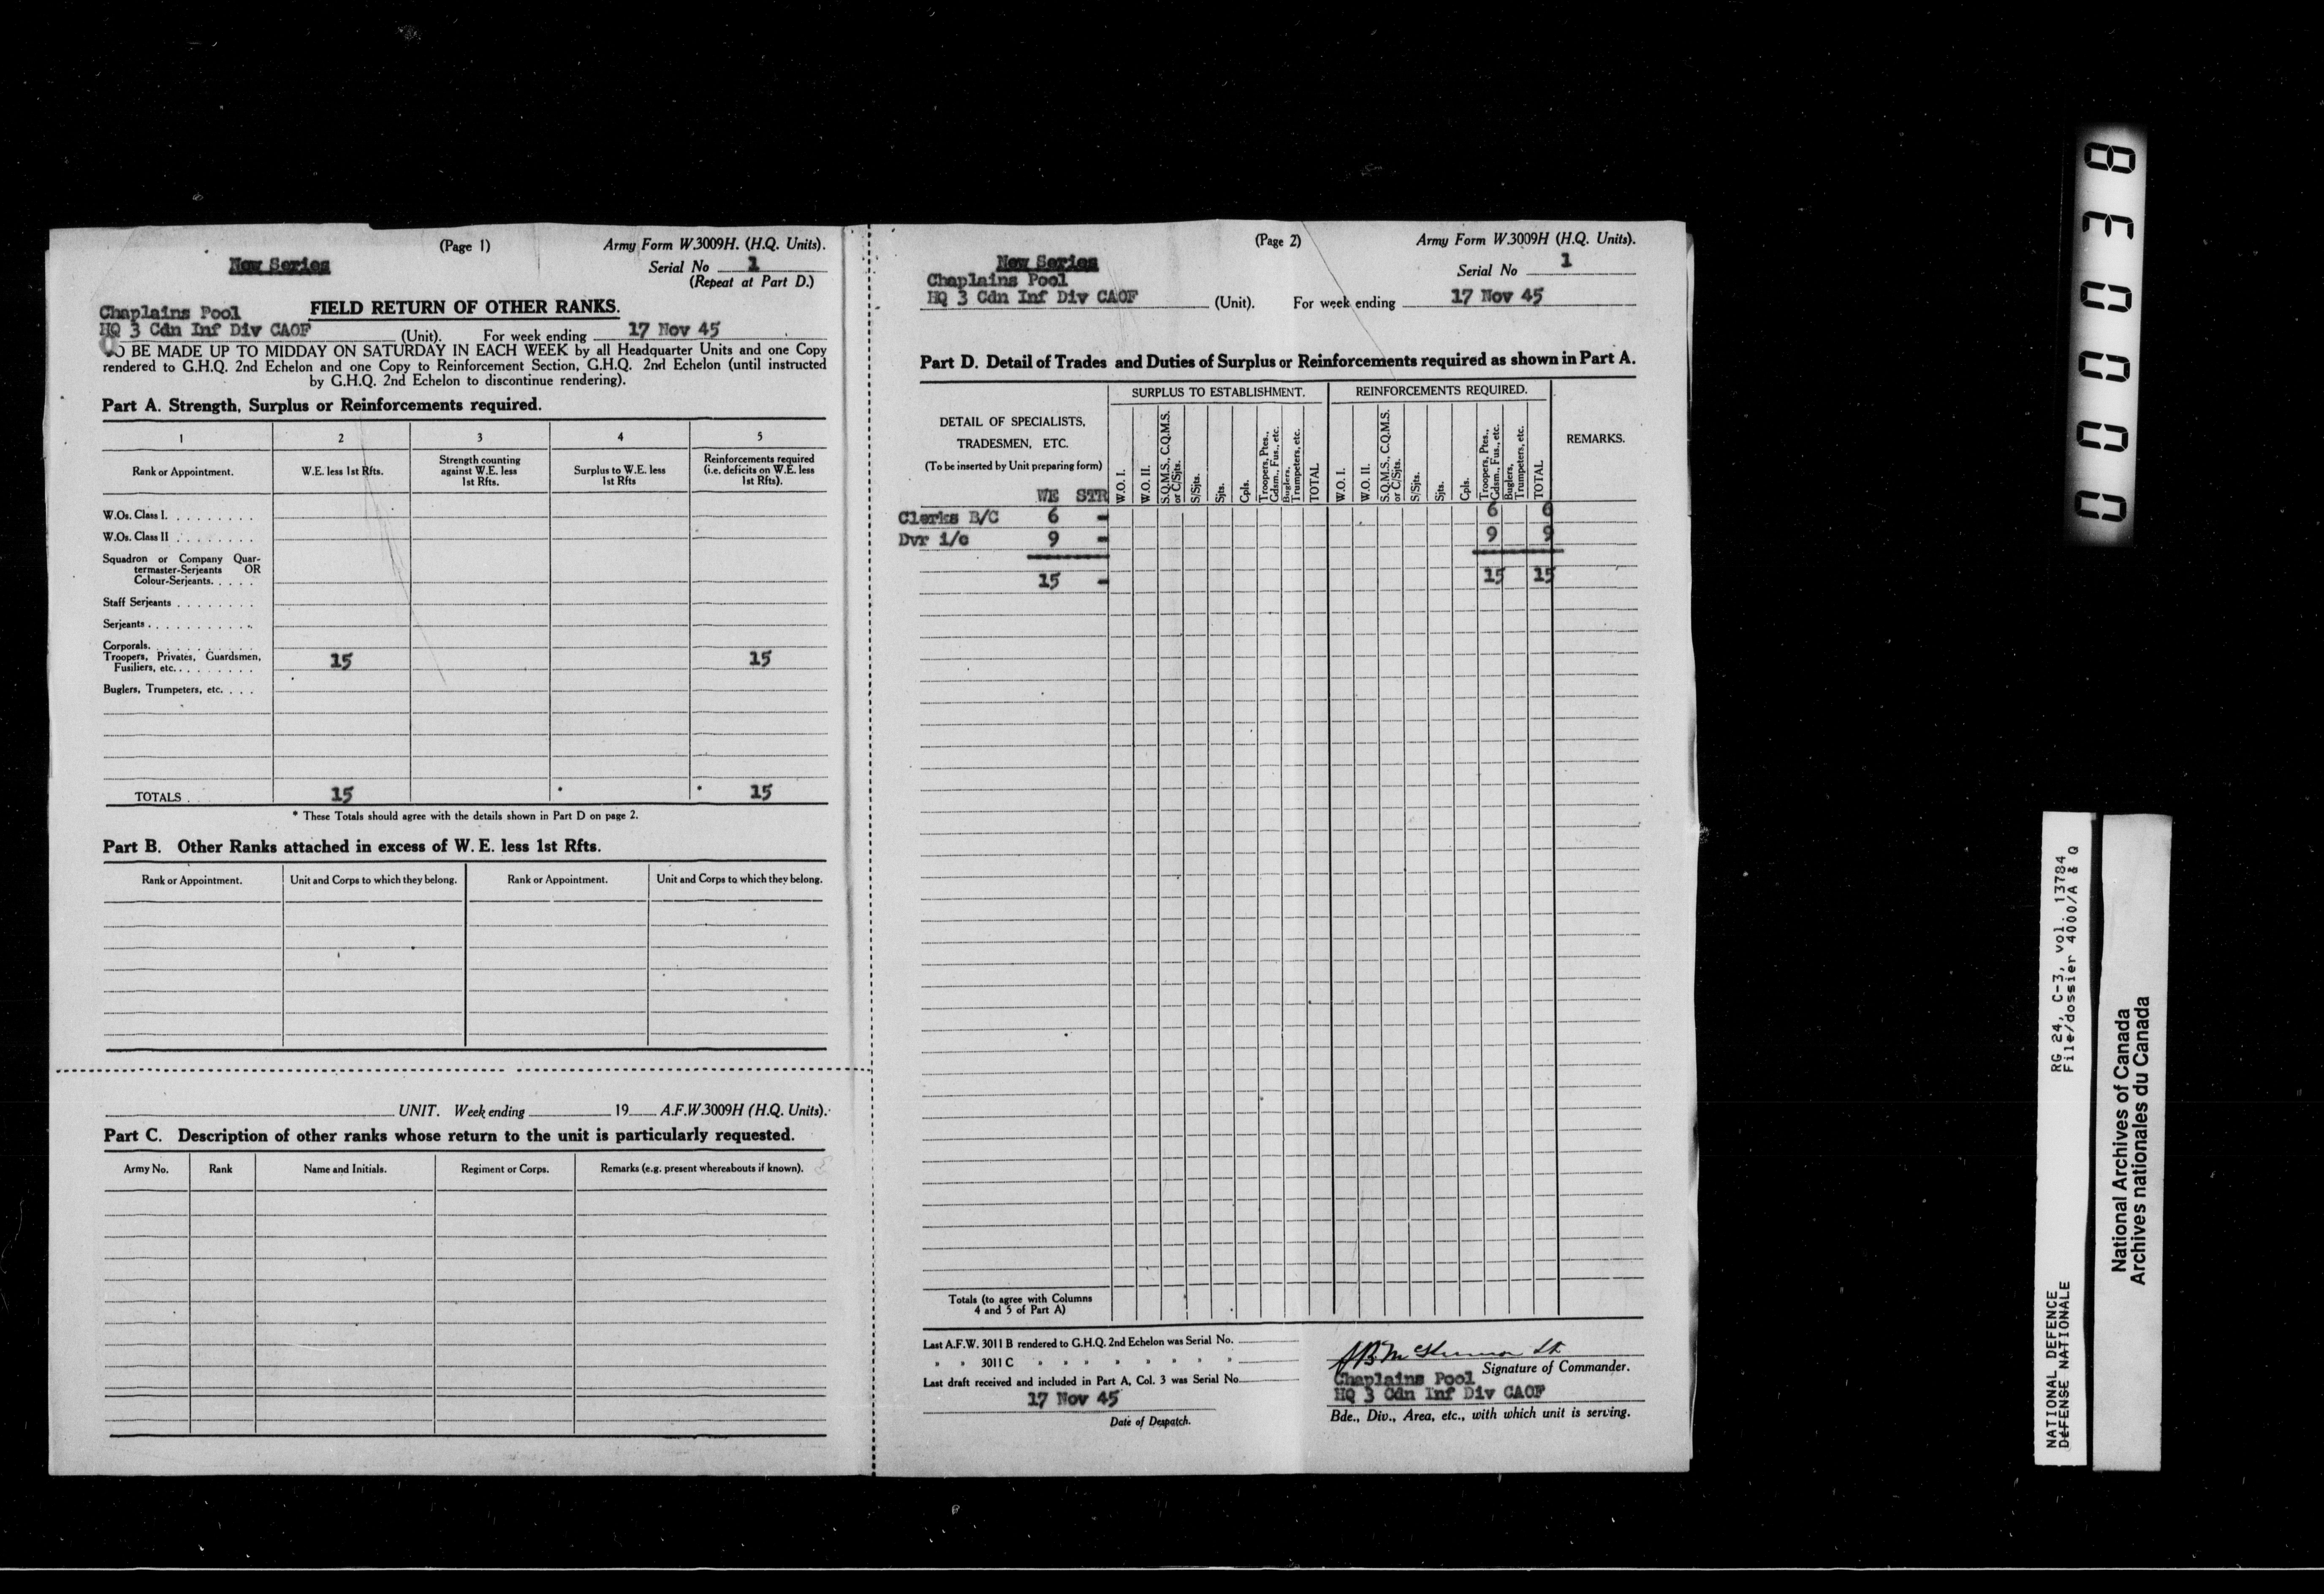 (Page 1)
Army Form W.3009H. (H.Q. Units).
New Series
Serial No 1
(Repeat at Part D.)
Chaplains Pool
FIELD RETURN OF OTHER RANKS.
HQ 3 Cdn Inf Div CAOF (Unit). For week ending 17 Nov 45
TO BE MADE UP TO MIDDAY ON SATURDAY IN EACH WEEK by all Headquarter Units and one Copy
rendered to G.H.Q. 2nd Echelon and one Copy to Reinforcement Section, G.H.Q. 2nd Echelon (until instructed
by G.H.Q. 2nd Echelon to discontinue rendering).
Part A. Strength, Surplus or Reinforcements required.
1 2 3 4 5
Rank or Appointment.
W.E. less 1st Rfts.
Strength counting
against W.E. less
1st Rfts.
Surplus to W.E. less
1st Rfts
Reinforcements required
(i.e. deficits on W.E. less
1st Rfts).
W.Os. Class I.
W.Os. Class II
Squadron or Company Quar-
termaster-Serjeants OR
Colour-Serjeants.
Staff Serjeants
Serjeants
Corporals.
Troopers, Privates, Guardsmen,
Fusiliers, etc. 15 15
Buglers, Trumpeters, etc.
TOTALS 15 * * 15
* These Totals should agree with the details shown in Part D on page 2.
Part B. Other Ranks attached in excess of W.E. less 1st Rfts.
Rank or Appointment. Unit and Corps to which they belong. Rank or Appointment. Unit and Corps to which they belong.
UNIT. Week ending 19 A.F.W.3009H (H.Q. Units).
Part C. Description of other ranks whose return to the unit is particularly requested.
Army No. Rank Name and Initials. Regiment or Corps. Remarks (e.g. present whereabouts if known).
(Page 2)
Army Form W.3009H (H.Q. Units).
New Series
Serial No 1
Chaplains Pool
HQ 3 Cdn Inf Div CAOF (Unit). For week ending 17 Nov 45
Part D. Detail of Trades and Duties of Surplus or Reinforcements required as shown in Part A.
DETAIL OF SPECIALISTS,
TRADESMEN, ETC.
(To be inserted by Unit preparing form)
WE STR
SURPLUS TO ESTABLISHMENT.
W.O. I.
W.O. II.
S.Q.M.S., C.Q.M.S.
or C/Sjts.
S/Sjts.
Sjts.
Cpls.
Troopers, Ptes.,
Gdsm., Fus., etc.
Buglers,
Trumpeters, etc.
TOTAL
REINFORCEMENTS REQUIRED.
W.O. I.
W.O. II.
S.Q.M.S., C.Q.M.S.
or C/Sjts.
S/Sjts.
Sjts.
Cpls.
Troopers, Ptes.,
Gdsm., Fus., etc.
Buglers,
Trumpeters, etc.
TOTAL
REMARKS.
Clerks B/C 6 - 6 6
Dvr i/c 9 - 9 9
15 - 15 15
Totals (to agree with Columns
4 and 5 of Part A)
Last A.F.W. 3011 B rendered to G.H.Q. 2nd Echelon was Serial No.
" " 3011 C " " " " " " " "
Last draft received and included in Part A, Col. 3 was Serial No
17 Nov 45
Date of Despatch.
Signature of Commander.
Chaplains Pool
HQ 3 Cdn Inf Div CAOF
Bde., Div., Area, etc., with which unit is serving.
000038
NATIONAL DEFENCE RG 24, C-3, vol. 13784
DEFENSE NATIONALE File/dossier 4000/A & Q
National Archives of Canada
Archives nationales du Canada